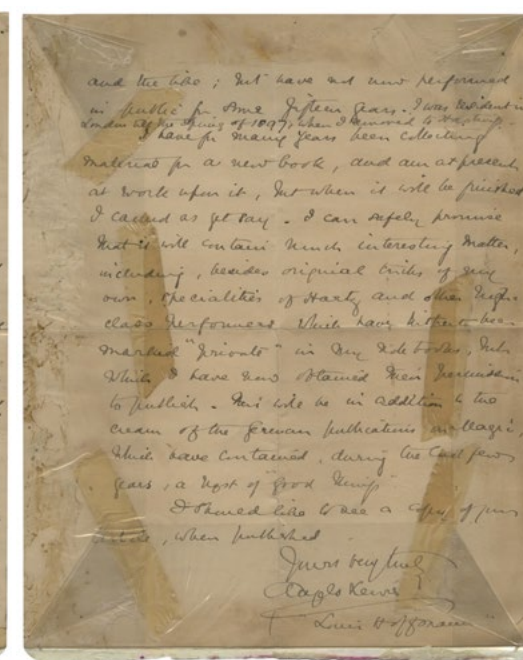 and the like; but have not now performed
in public for some fifteen years. I was resident in
London till the Spring of 1897, when I removed to Hastings.
I have for many years been collecting
material for a new book, and am at present
at work upon it, but when it will be finished
I cannot as yet say. I can safely promise
that it will contain much interesting matter,
including, besides original tricks of my
own, specialities of Hartz and other high
class performers which have hitherto been
marked "private" in my note books, but
which I have now obtained their permission
to publish. This will be in addition to the
cream of the German publications on Magic,
which have contained, during the last few
years, a host of "good things"
I should like to see a copy of your
article, when published
Yours very truly
Angelo Lewis
"Louis Hoffmann"